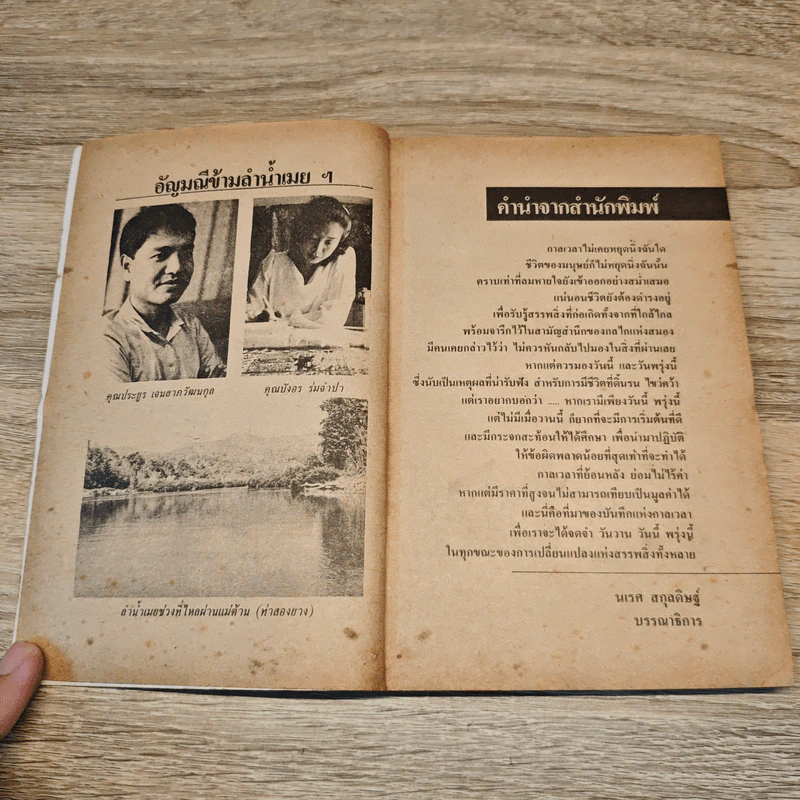 อัญมณีข้ามลำน้ำเมย ฯ
คุณประยูร เจนลาภวัฒนกุล
คุณบังอร ร่มจำปา
ลำน้ำเมยช่วงที่ไหลผ่านแม่ต้าน (ท่าสองยาง)
คำนำจากสำนักพิมพ์
กาลเวลาไม่เคยหยุดนิ่งฉันใด
ชีวิตของมนุษย์ก็ไม่หยุดนิ่งฉันนั้น
ตราบเท่าที่ลมหายใจยังเข้าออกอย่างสม่ำเสมอ
แน่นอนชีวิตยังต้องดำรงอยู่
เพื่อรับรู้สรรพสิ่งที่ก่อเกิดทั้งจากที่ใกล้ไกล
พร้อมจารึกไว้ในสามัญสำนึกของกลไกแห่งสมอง
มีคนเคยกล่าวไว้ว่า ไม่ควรหันกลับไปมองในสิ่งที่ผ่านเลย
หากแต่ควรมองวันนี้ และวันพรุ่งนี้
ซึ่งนับเป็นเหตุผลที่น่ารับฟัง สำหรับการมีชีวิตที่ดิ้นรน ไขว่คว้า
แต่เราอยากบอกว่า ..... หากเรามีเพียงวันนี้ พรุ่งนี้
แต่ไม่มีเมื่อวานนี้ ก็ยากที่จะมีการเริ่มต้นที่ดี
และมีกระจกสะท้อนให้ได้ศึกษา เพื่อนำมาปฏิบัติ
ให้ข้อผิดพลาดน้อยที่สุดเท่าที่จะทำได้
กาลเวลาที่ย้อนหลัง ย่อมไม่ไร้ค่า
หากแต่มีราคาที่สูงจนไม่สามารถเทียบเป็นมูลค่าได้
และนี่คือที่มาของบันทึกแห่งกาลเวลา
เพื่อเราจะได้จดจำ วันวาน วันนี้ พรุ่งนี้
ในทุกขณะของการเปลี่ยนแปลงแห่งสรรพสิ่งทั้งหลาย
นเรศ สกุลดิษฐ์
บรรณาธิการ